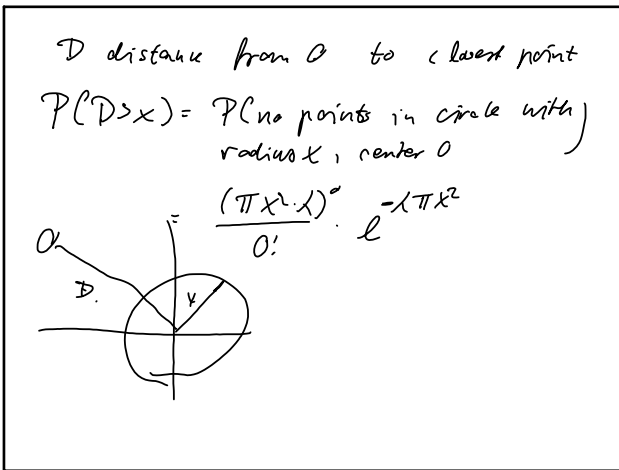 D distance from O to closest point
P(D>x) = P(no points in circle with)
radius x, center O
= (πx²·λ)⁰ / 0! · e^-λπx²
D.
x